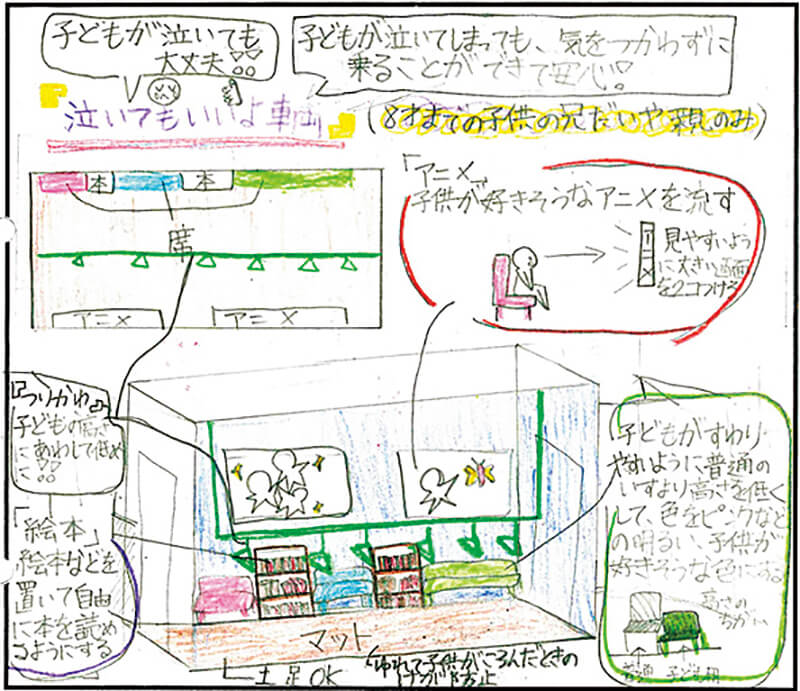 子どもが泣いても
大丈夫!!
子どもが泣いてしまっても、気をつかわずに
乗ることができて安心!
『泣いてもいいよ車両』
(8才までの子供の兄だいや親のみ)
本
本
席
アニメ
アニメ
「アニメ」
子供が好きそうなアニメを流す
アニメ
見やすいよう
に大きい画面
を2コつける
『つりかわ』
子どもの高さ
にあわして低め
に!!
「絵本」
絵本などを
置いて自由
に本を読め
るようにする
子どもがすわり
やすいように普通の
いすより高さを低く
して、色をピンクなど
の明るい、子供が
好きそうな色にする
高さの
ちがい
普通
子ども用
マット
土足OK
ゆれて子供がころんだときの
けがが防止